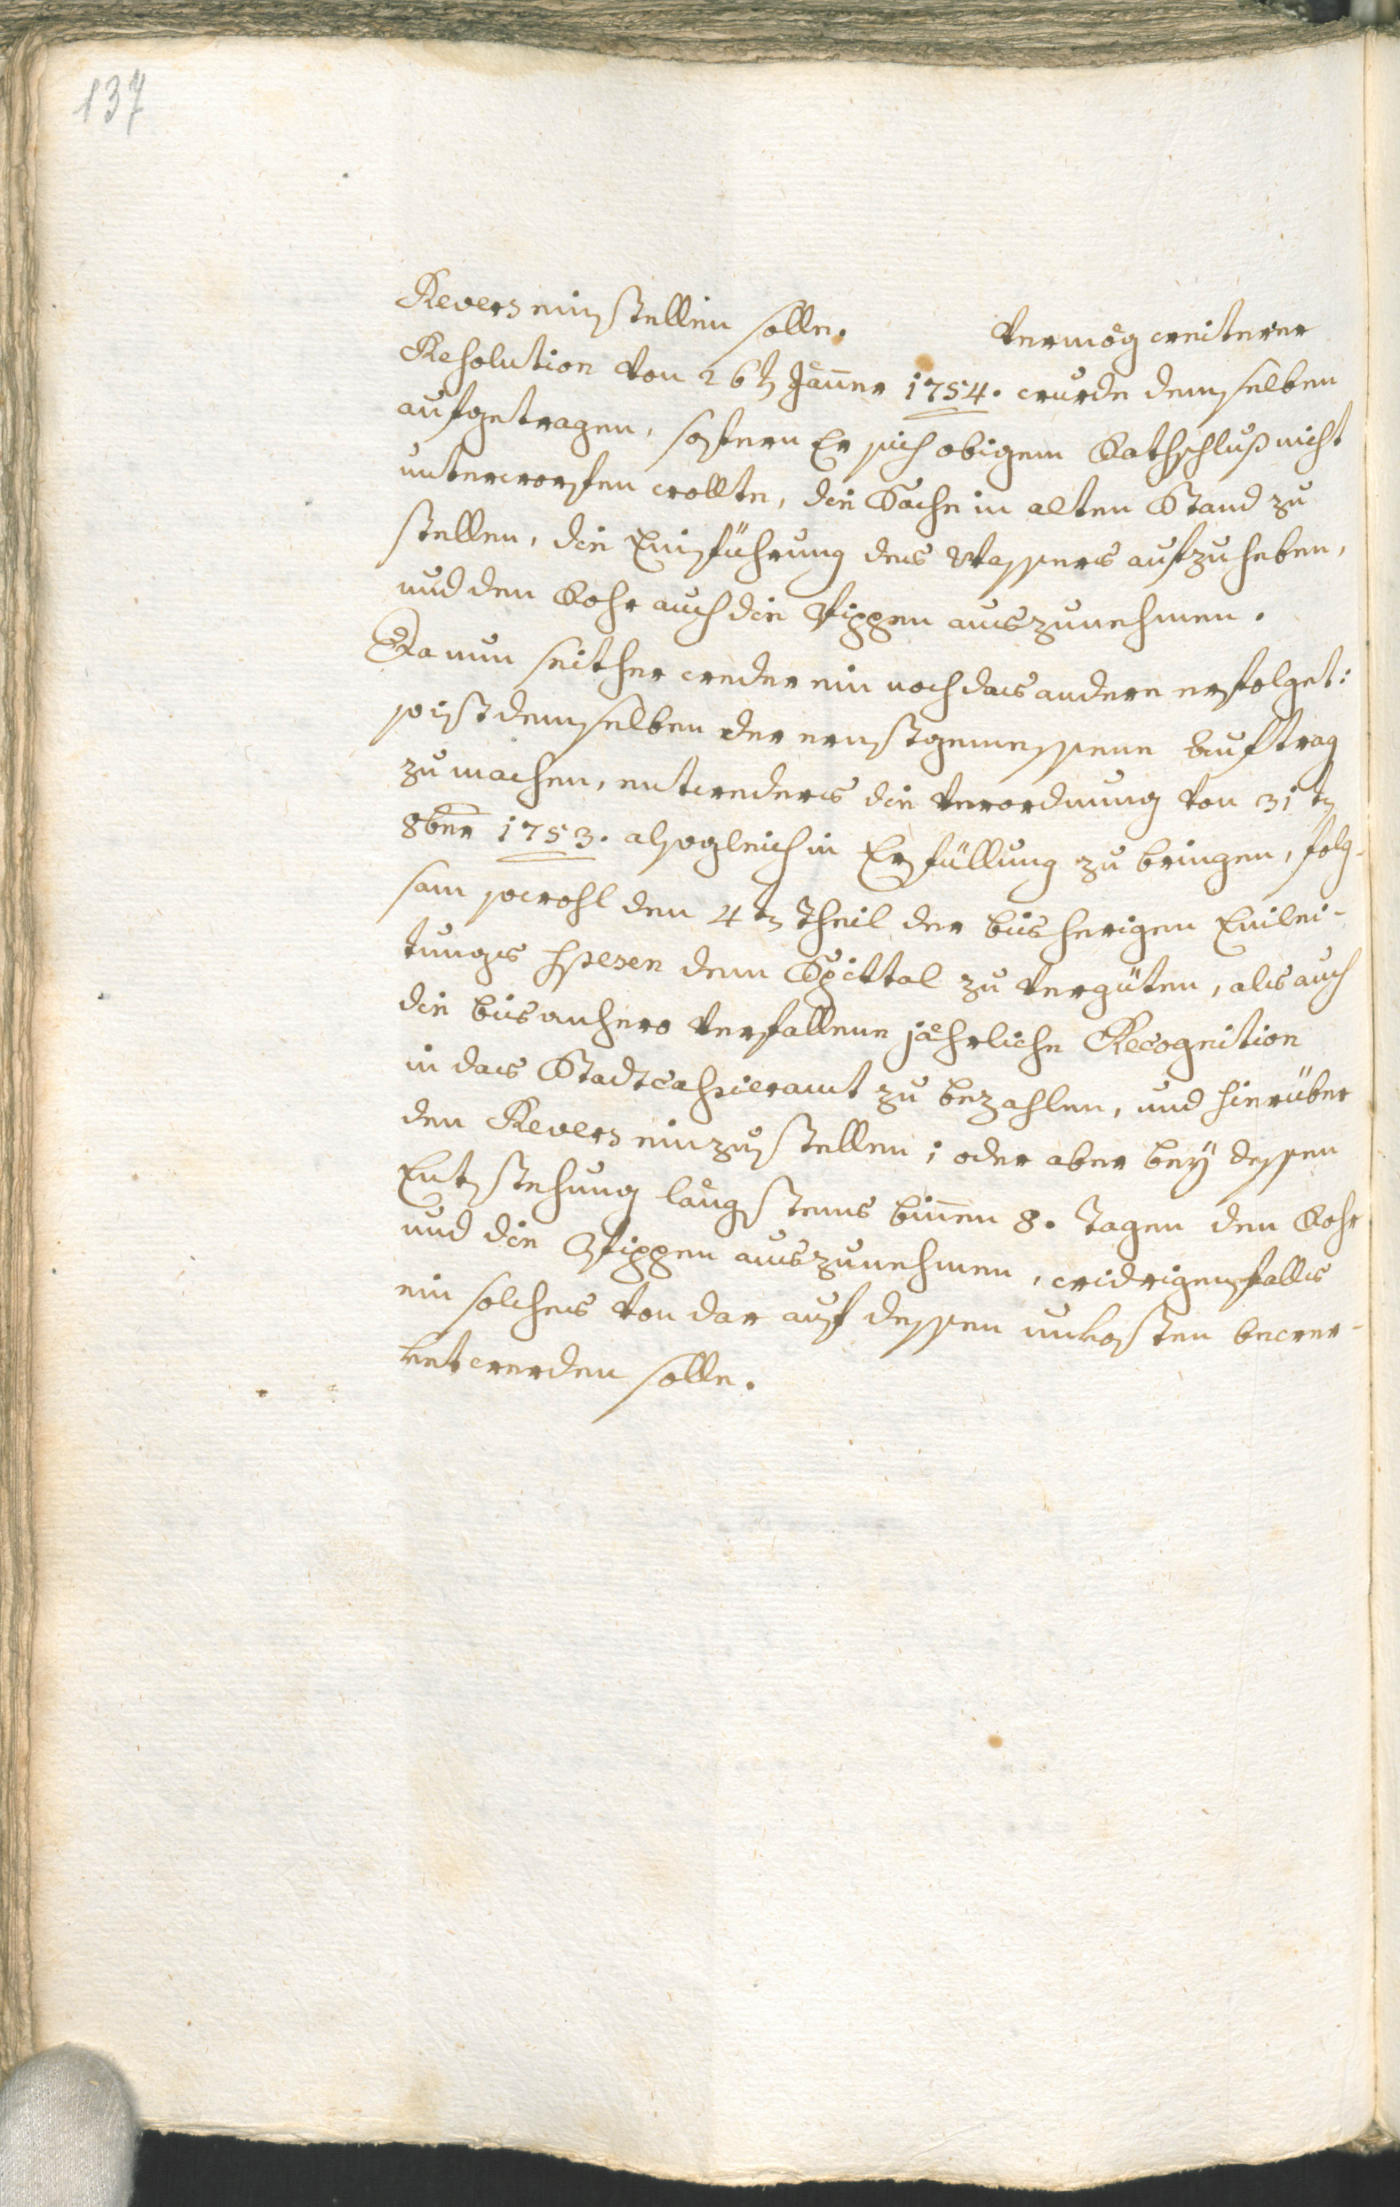 137
Revers einstellen solle. Vermög weiterer
Resolution von 26t Jänner 1754. wurde demselben
aufgetragen, sofern Er sich obigem Rathschluß nicht
unterworfen wollte, die Sache in alten Stand zu
stellen, die Einführung des Wassers aufzuheben,
und den Rohr auch die Pippen auszunehmen.
Da nun seither weder ein noch das andere erfolget:
so ist demselben der ernstgemessene Auftrag
zu machen, entweders die Verordnung von 31tn
8ber 1753. alsogleich in Erfüllung zu bringen, folg-
sam sowohl den 4tn Theil der bisherigen Einlei-
tungs spesen dem Spittal zu vergüten, als auch
die bis anhero verfallene jährliche Recognition
in das Stadtcassieramt zu bezahlen, und hierüber
den Revers einzustellen; oder aber beÿ dessen
Entstehung längstens binnen 8. Tagen den Rohr
und die Pippen auszunehmen, widrigenfalls
ein solches von dar auf dessen unkosten bewer-
ket werden solle.